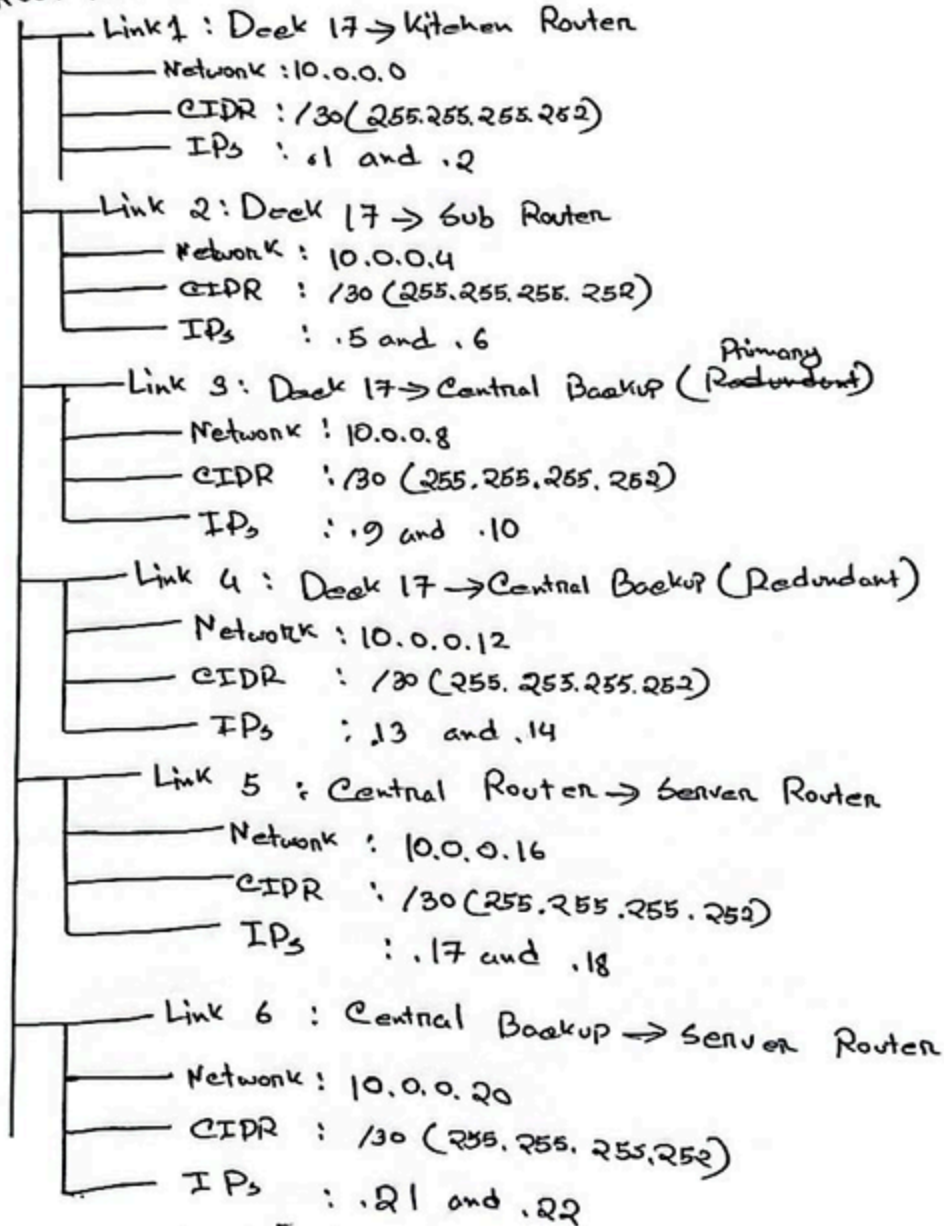 Link 1 : Deck 17 → Kitchen Router
Network : 10.0.0.0
CIDR : /30 (255.255.255.252)
IPs : .1 and .2
Link 2 : Deck 17 → Sub Router
Network : 10.0.0.4
CIDR : /30 (255.255.255.252)
IPs : .5 and .6
Primary
Link 3 : Deck 17 → Central Backup (Redundant)
Network : 10.0.0.8
CIDR : /30 (255.255.255.252)
IPs : .9 and .10
Link 4 : Deck 17 → Central Backup (Redundant)
Network : 10.0.0.12
CIDR : /30 (255.255.255.252)
IPs : .13 and .14
Link 5 : Central Router → Server Router
Network : 10.0.0.16
CIDR : /30 (255.255.255.252)
IPs : .17 and .18
Link 6 : Central Backup → Server Router
Network : 10.0.0.20
CIDR : /30 (255.255.255.252)
IPs : .21 and .22